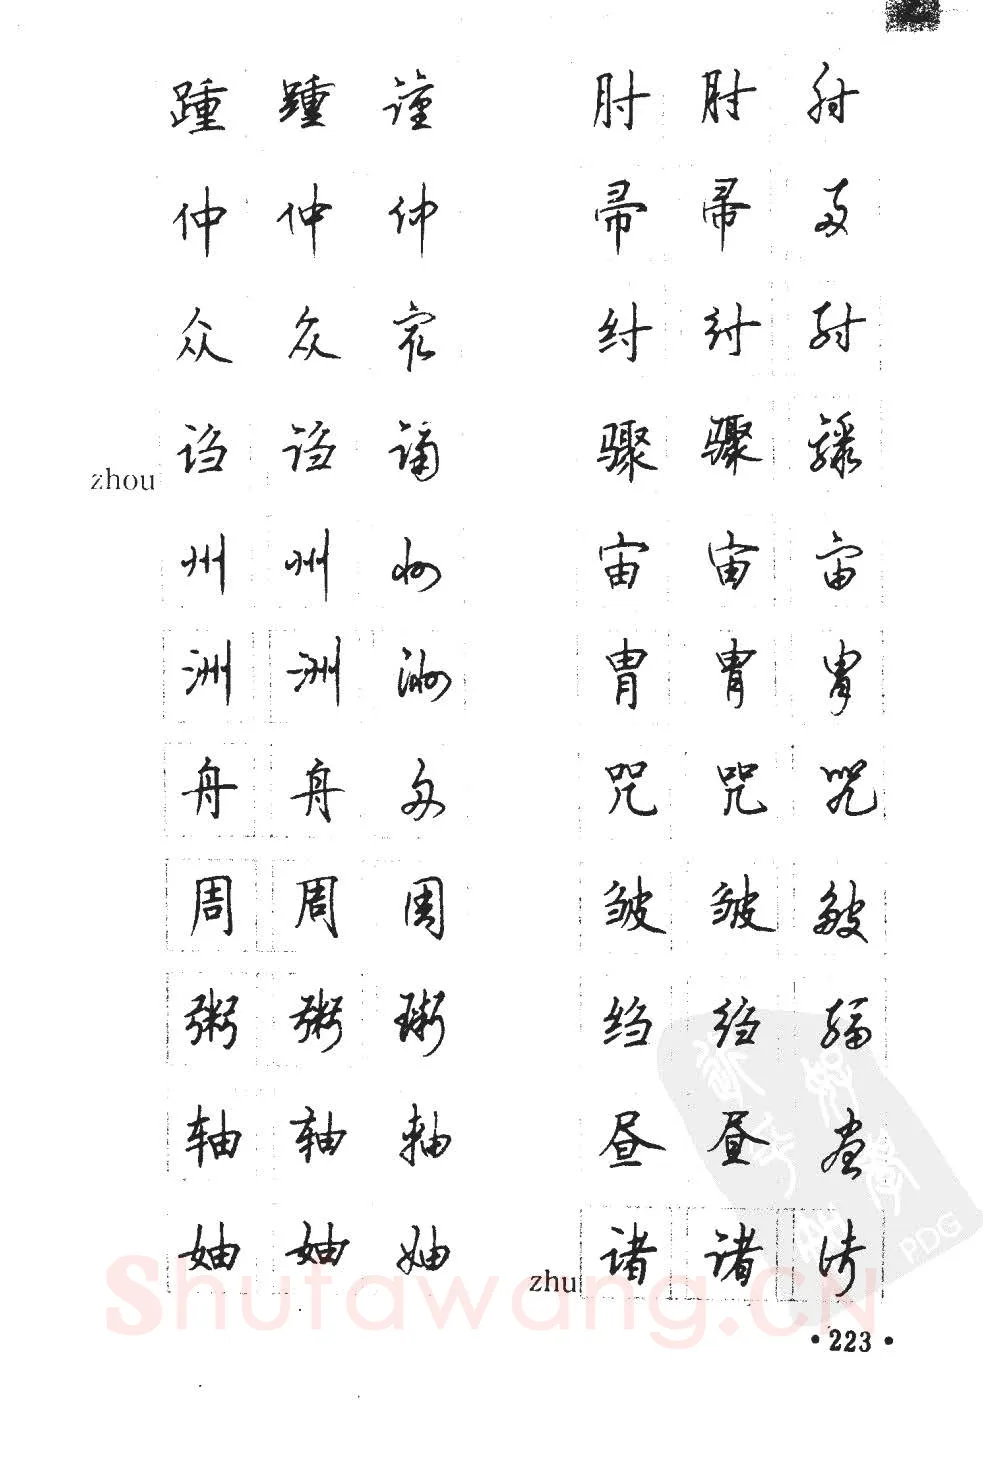 踵 踵 踵
仲 仲 仲
众 众 众
zhou 诌 诌 诌
州 州 州
洲 洲 洲
舟 舟 舟
周 周 周
粥 粥 粥
轴 轴 轴
妯 妯 妯
肘 肘 肘
帚 帚 帚
纣 纣 纣
骤 骤 骤
宙 宙 宙
胄 胄 胄
咒 咒 咒
皱 皱 皱
绉 绉 绉
昼 昼 昼
zhu 诸 诸 诸
Shufawang.CN
PDG
·223·